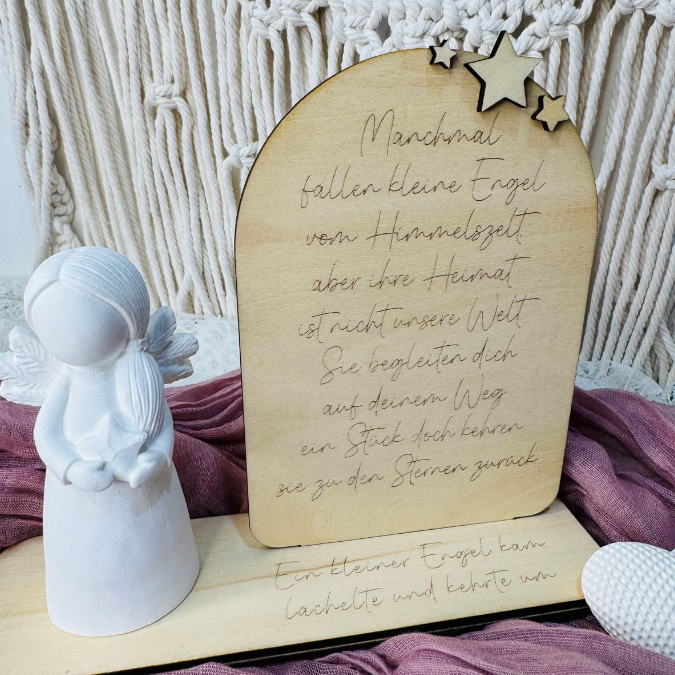 Manchmal
fallen kleine Engel
vom Himmelszelt
aber ihre Heimat
ist nicht unsere Welt
Sie begleiten dich
auf deinem Weg
ein Stück doch kehren
sie zu den Sternen zurück
Ein kleiner Engel kam
lächelte und kehrte um